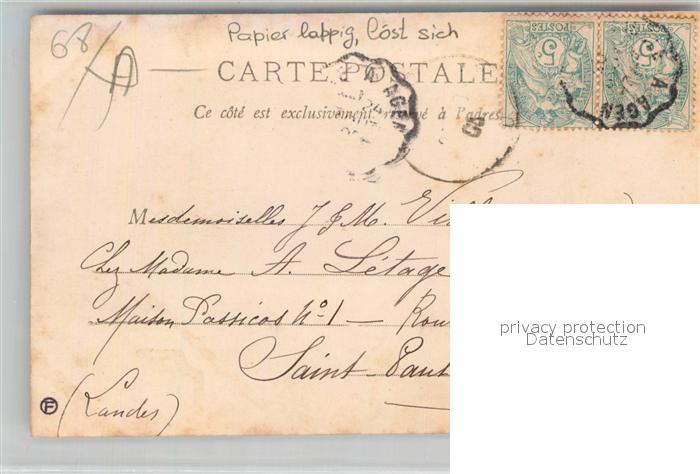 68
Papier lappig, löst sich
POSTES POSTES
5 5
CARTE POSTALE
A AGEN A AGEN
Ce côté est exclusivement réservé à l'adresse
5
Mesdemoiselles J & M.
Chez Madame A. Létage
privacy protection
Maison Passicos Nº 1 —
Datenschutz
Saint-
(Landes)
F